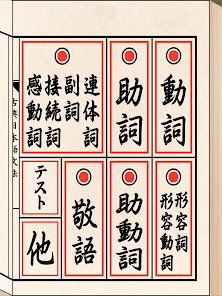 動詞
助詞
連体詞
副詞
接続詞
感動詞
形容詞
形容動詞
助動詞
敬語
テスト
他
古典日本語文法